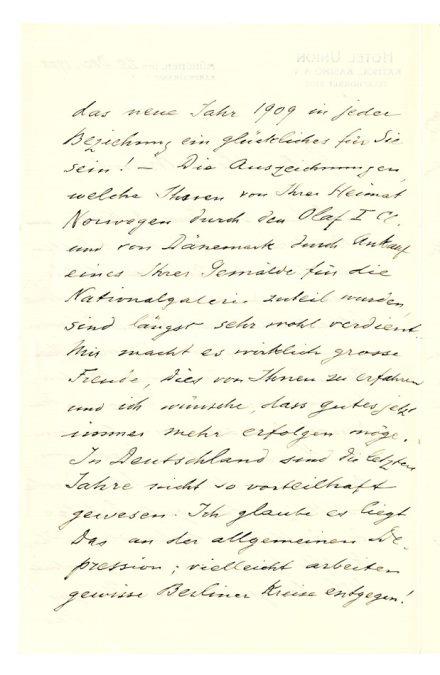 das neue Jahr 1909 in jeder
Beziehung ein glückliches für Sie
sein! — Die Auszeichnungen,
welche Ihnen von Ihrer Heimat
Norwegen durch den Olaf I Cl.
und von Dänemark durch Ankauf
eines Ihrer Gemälde für die
Nationalgalerie zuteil wurden,
sind längst sehr wohl verdient.
Mir macht es wirklich grosse
Freude, dies von Ihnen zu erfahren
und ich wünsche, dass gutes jetzt
immer mehr erfolgen möge.
In Deutschland sind die letzten
Jahre nicht so vorteilhaft
gewesen. Ich glaube es liegt
das an der allgemeinen De-
pression; vielleicht arbeiten
gewisse Berliner Kreise entgegen!